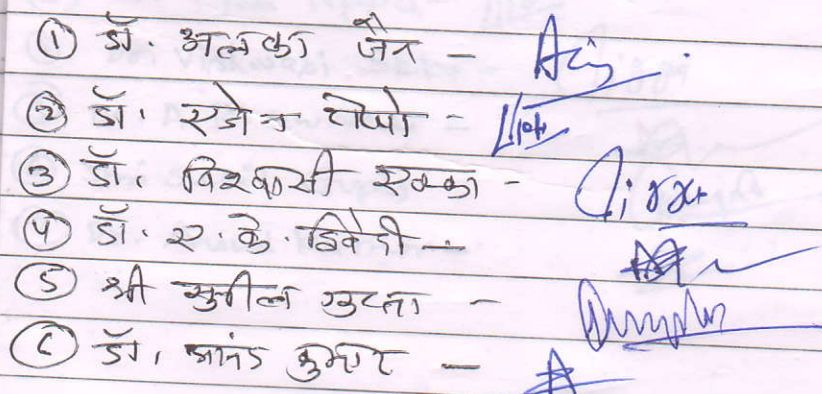 ① डॉ. अलका जैन -
② डॉ. राजेन टोप्पो -
③ डॉ. विश्वासी एक्का -
④ डॉ. ए. के. द्विवेदी -
⑤ श्री सुनील गुप्ता -
⑥ डॉ. आनंद कुमार -